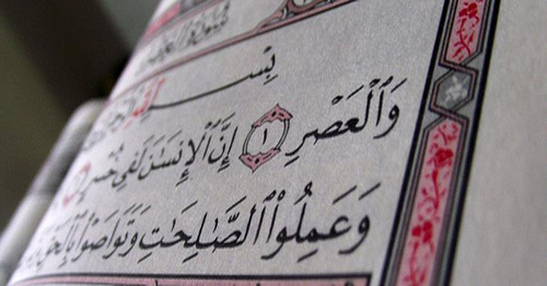 بِسْـــــمِ ٱللَّهِ
وَٱلْعَصْرِ ١ إِنَّ ٱلْإِنسَٰنَ لَفِى خُسْرٍ
وَعَمِلُوا۟ ٱلصَّٰلِحَٰتِ وَتَوَاصَوْا۟ بِٱلْحَقِّ